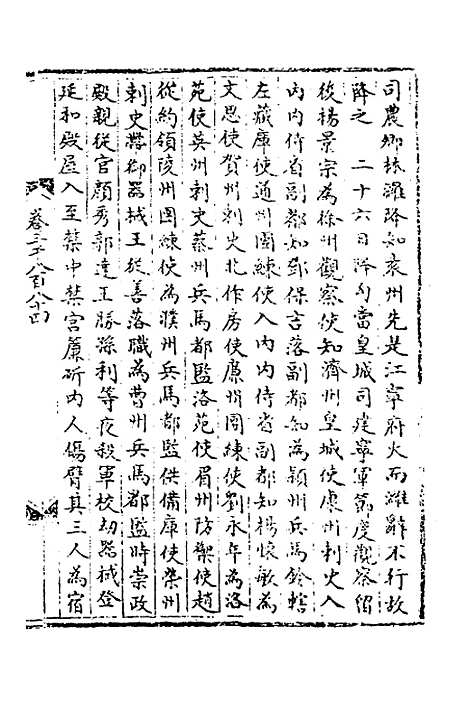 司農卿林濰降知袁州先是江寧府火而濰辭不行故
降之　二十六日降勾當皇城司建寧軍節度觀察留
後楊景宗為徐州觀察使知濟州皇城使康州刺史入
内内侍省副都知鄧保吉落副都知為潁州兵馬鈐轄
左藏庫使通州團練使入内内侍省副都知楊懷敏為
文思使賀州刺史北作坊使廉州團練使劉永年為洛
苑使英州刺史蔡州兵馬都監洛苑使眉州防禦使趙
從約領陵州團練使為濮州兵馬都監供備庫使榮州
刺史帶御器械王從善落職為曹州兵馬都監時崇政
殿親從官顔秀郭逵王勝孫利等夜殺軍校劫器械登
延和殿屋入至禁中焚宮簾斫内人傷臂其三人為宿
卷三千八百八十四